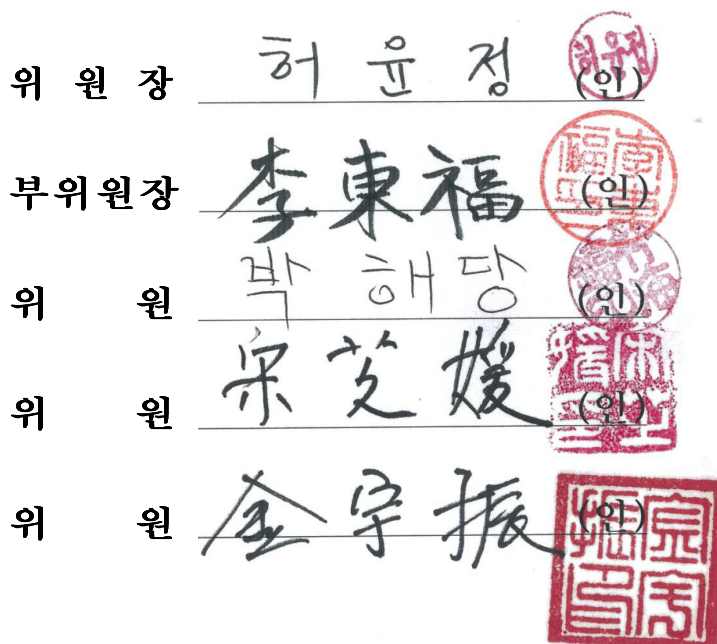 위 원 장 허 윤 정 (인)
부위원장 李東福 (인)
위 원 박 해 당 (인)
위 원 宋芝媛 (인)
위 원 金宇振 (인)